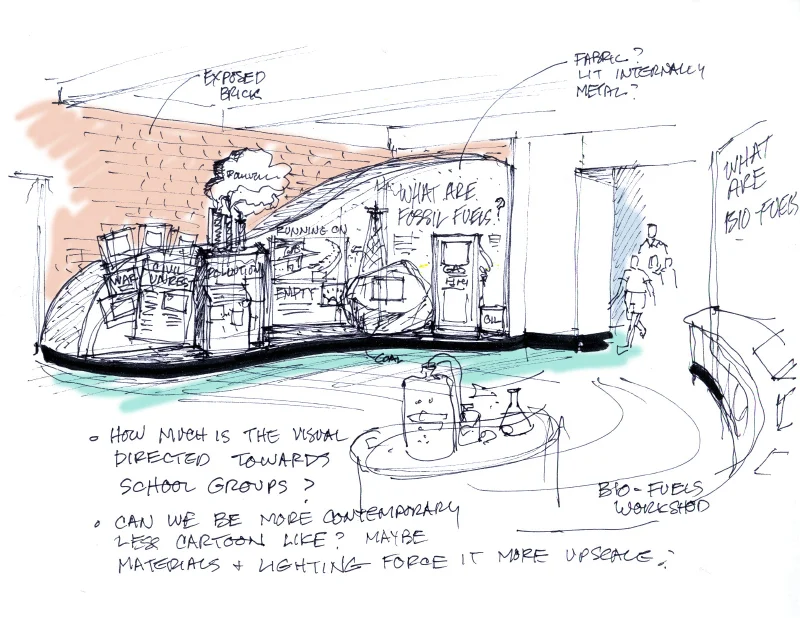 EXPOSED
BRICK
FABRIC?
LIT INTERNALLY
METAL?
WHAT ARE
FOSSIL FUELS?
WHAT
ARE
BIO-FUELS
RUNNING ON
EMPTY
WAR
CIVIL
UNREST
POLLUTION
GAS
OIL
COAL
• HOW MUCH IS THE VISUAL
DIRECTED TOWARDS
SCHOOL GROUPS?
• CAN WE BE MORE CONTEMPORARY
LESS CARTOON LIKE? MAYBE
MATERIALS + LIGHTING FORCE IT MORE UPSCALE?
BIO-FUELS
WORKSHOP